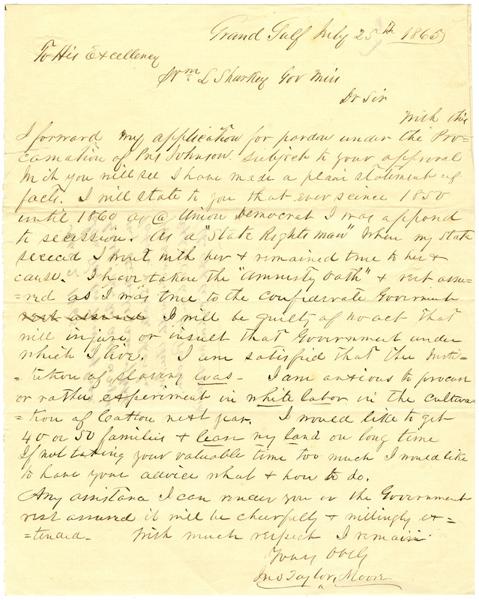 Grand Gulf July 25th 1865
To His Excellency
Wm L Sharkey Gov Miss
Dr Sir
With this
I forward my application for pardon under the Pro-
camation of Prs Johnson subject to your approval
In it you will see I have made a plain statement of
facts. I will state to you that ever seince 1850
until 1860 as @ Union Democrat I was apposed
to secession. As a "State Rights man" when my State
seceed I went with her & remained true to her &
cause. I have taken the "amnesty oath" & rest assu=
=red as I was true to the confiderate Goverment
rest assured I will be guilty of no act that
will injure or insult that Government under
which I live. I am satisfied that the Insti=
=tution of slavery was. I am anxious to procure
or rather experiment in white labor in the cultiva
=tion of Cotton next year. I would like to get
40 or 50 families & lease my land on long time
If not taking your valuable time too much I would like
to have your advice what & how to do.
Any assistance I can render you or the Government
rest assured it will be cheerfully & willingly ex=
=tended. With much respect I remain
Yours Obly
Jno Taylor Moore